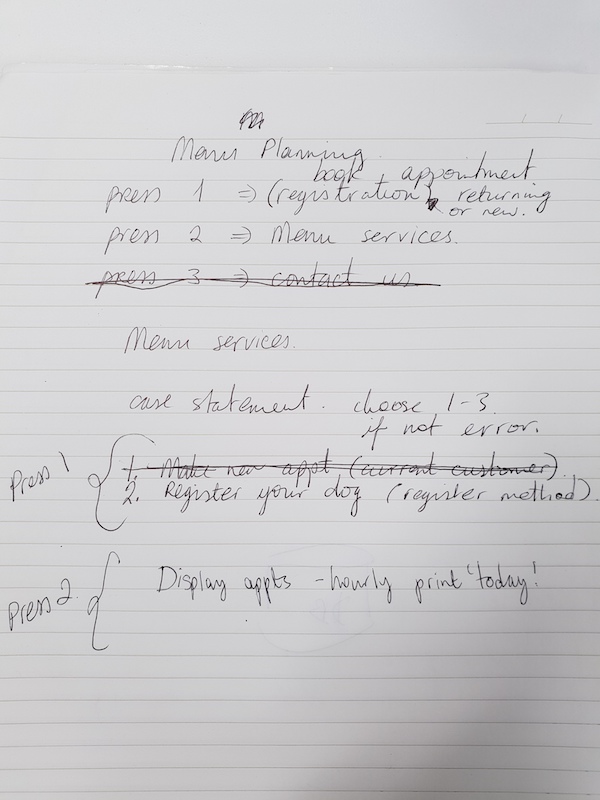 Menu Planning.
book appointment
press 1 => (registration) returning
or new.
press 2 => Menu services.
press 3 => contact us
Menu services.
case statement. choose 1-3
if not error.
Press 1
1. Make new appt (current customer).
2. Register your dog (register method).
Press 2.
Display appts - hourly print 'today'.